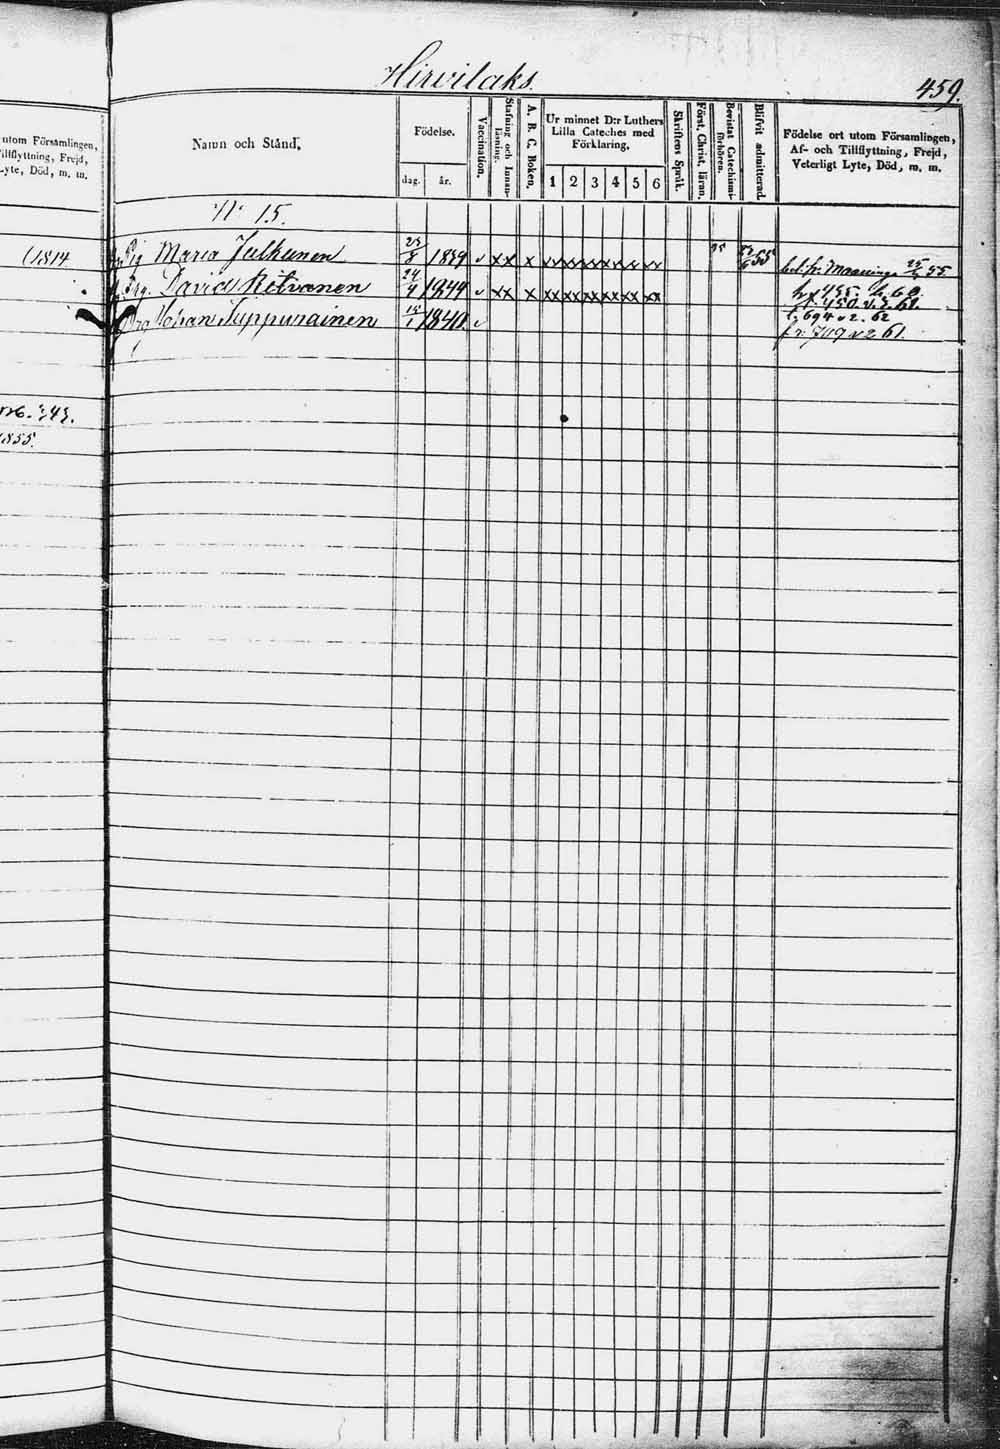 Hirvilaks.
459.
utom Församlingen,
Tillflyttning, Frejd,
Lyte, Död, m. m.
Namn och Stånd.
Födelse.
dag. år.
Vaccination.
Stafning och Innan-läsning.
A. B. C. Boken.
Ur minnet D:r Luthers
Lilla Cateches med
Förklaring.
1 2 3 4 5 6
Skriftens Språk.
Först. Christ. läran.
Bevistat Catechismi-förhören.
Blifvit admitterad.
Födelse ort utom Församlingen,
Af- och Tillflyttning, Frejd,
Veterligt Lyte, Död, m. m.
N:o 15.
(1814
Pig Maria Julkunen 23/8 1839 v xx x xx xx xx xx xx xx 55 bet. fr. Maaninga 25/ 55
Drg. David Ritvanen 24/4 1844 v xx x xx xx xx xx xx xx 455. 60.
450. v. 2. 61.
Drg Johan Suppurainen 15/1 1840. v 694 v 2. 62
fr. 709 v 2 61.
1855.